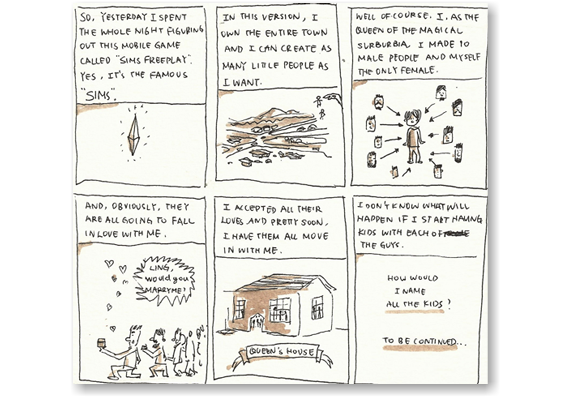 SO, YESTERDAY I SPENT
THE WHOLE NIGHT FIGURING
OUT THIS MOBILE GAME
CALLED "SIMS FREEPLAY".
YES, IT'S THE FAMOUS
"SIMS".
IN THIS VERSION, I
OWN THE ENTIRE TOWN
AND I CAN CREATE AS
MANY LITTLE PEOPLE AS
I WANT.
WELL OF COURSE. I, AS THE
QUEEN OF THE MAGICAL
SURBURBIA, I MADE 10
MALE PEOPLE AND MYSELF
THE ONLY FEMALE.
AND, OBVIOUSLY, THEY
ARE ALL GOING TO FALL
IN LOVE WITH ME.
LING,
would you
MARRY ME?
I ACCEPTED ALL THEIR
LOVES, AND PRETTY SOON,
I HAVE THEM ALL MOVE
IN WITH ME.
QUEEN'S HOUSE
I DON'T KNOW WHAT WILL
HAPPEN IF I START HAVING
KIDS WITH EACH OF
THE GUYS.
HOW WOULD
I NAME
ALL THE KIDS?
TO BE CONTINUED...